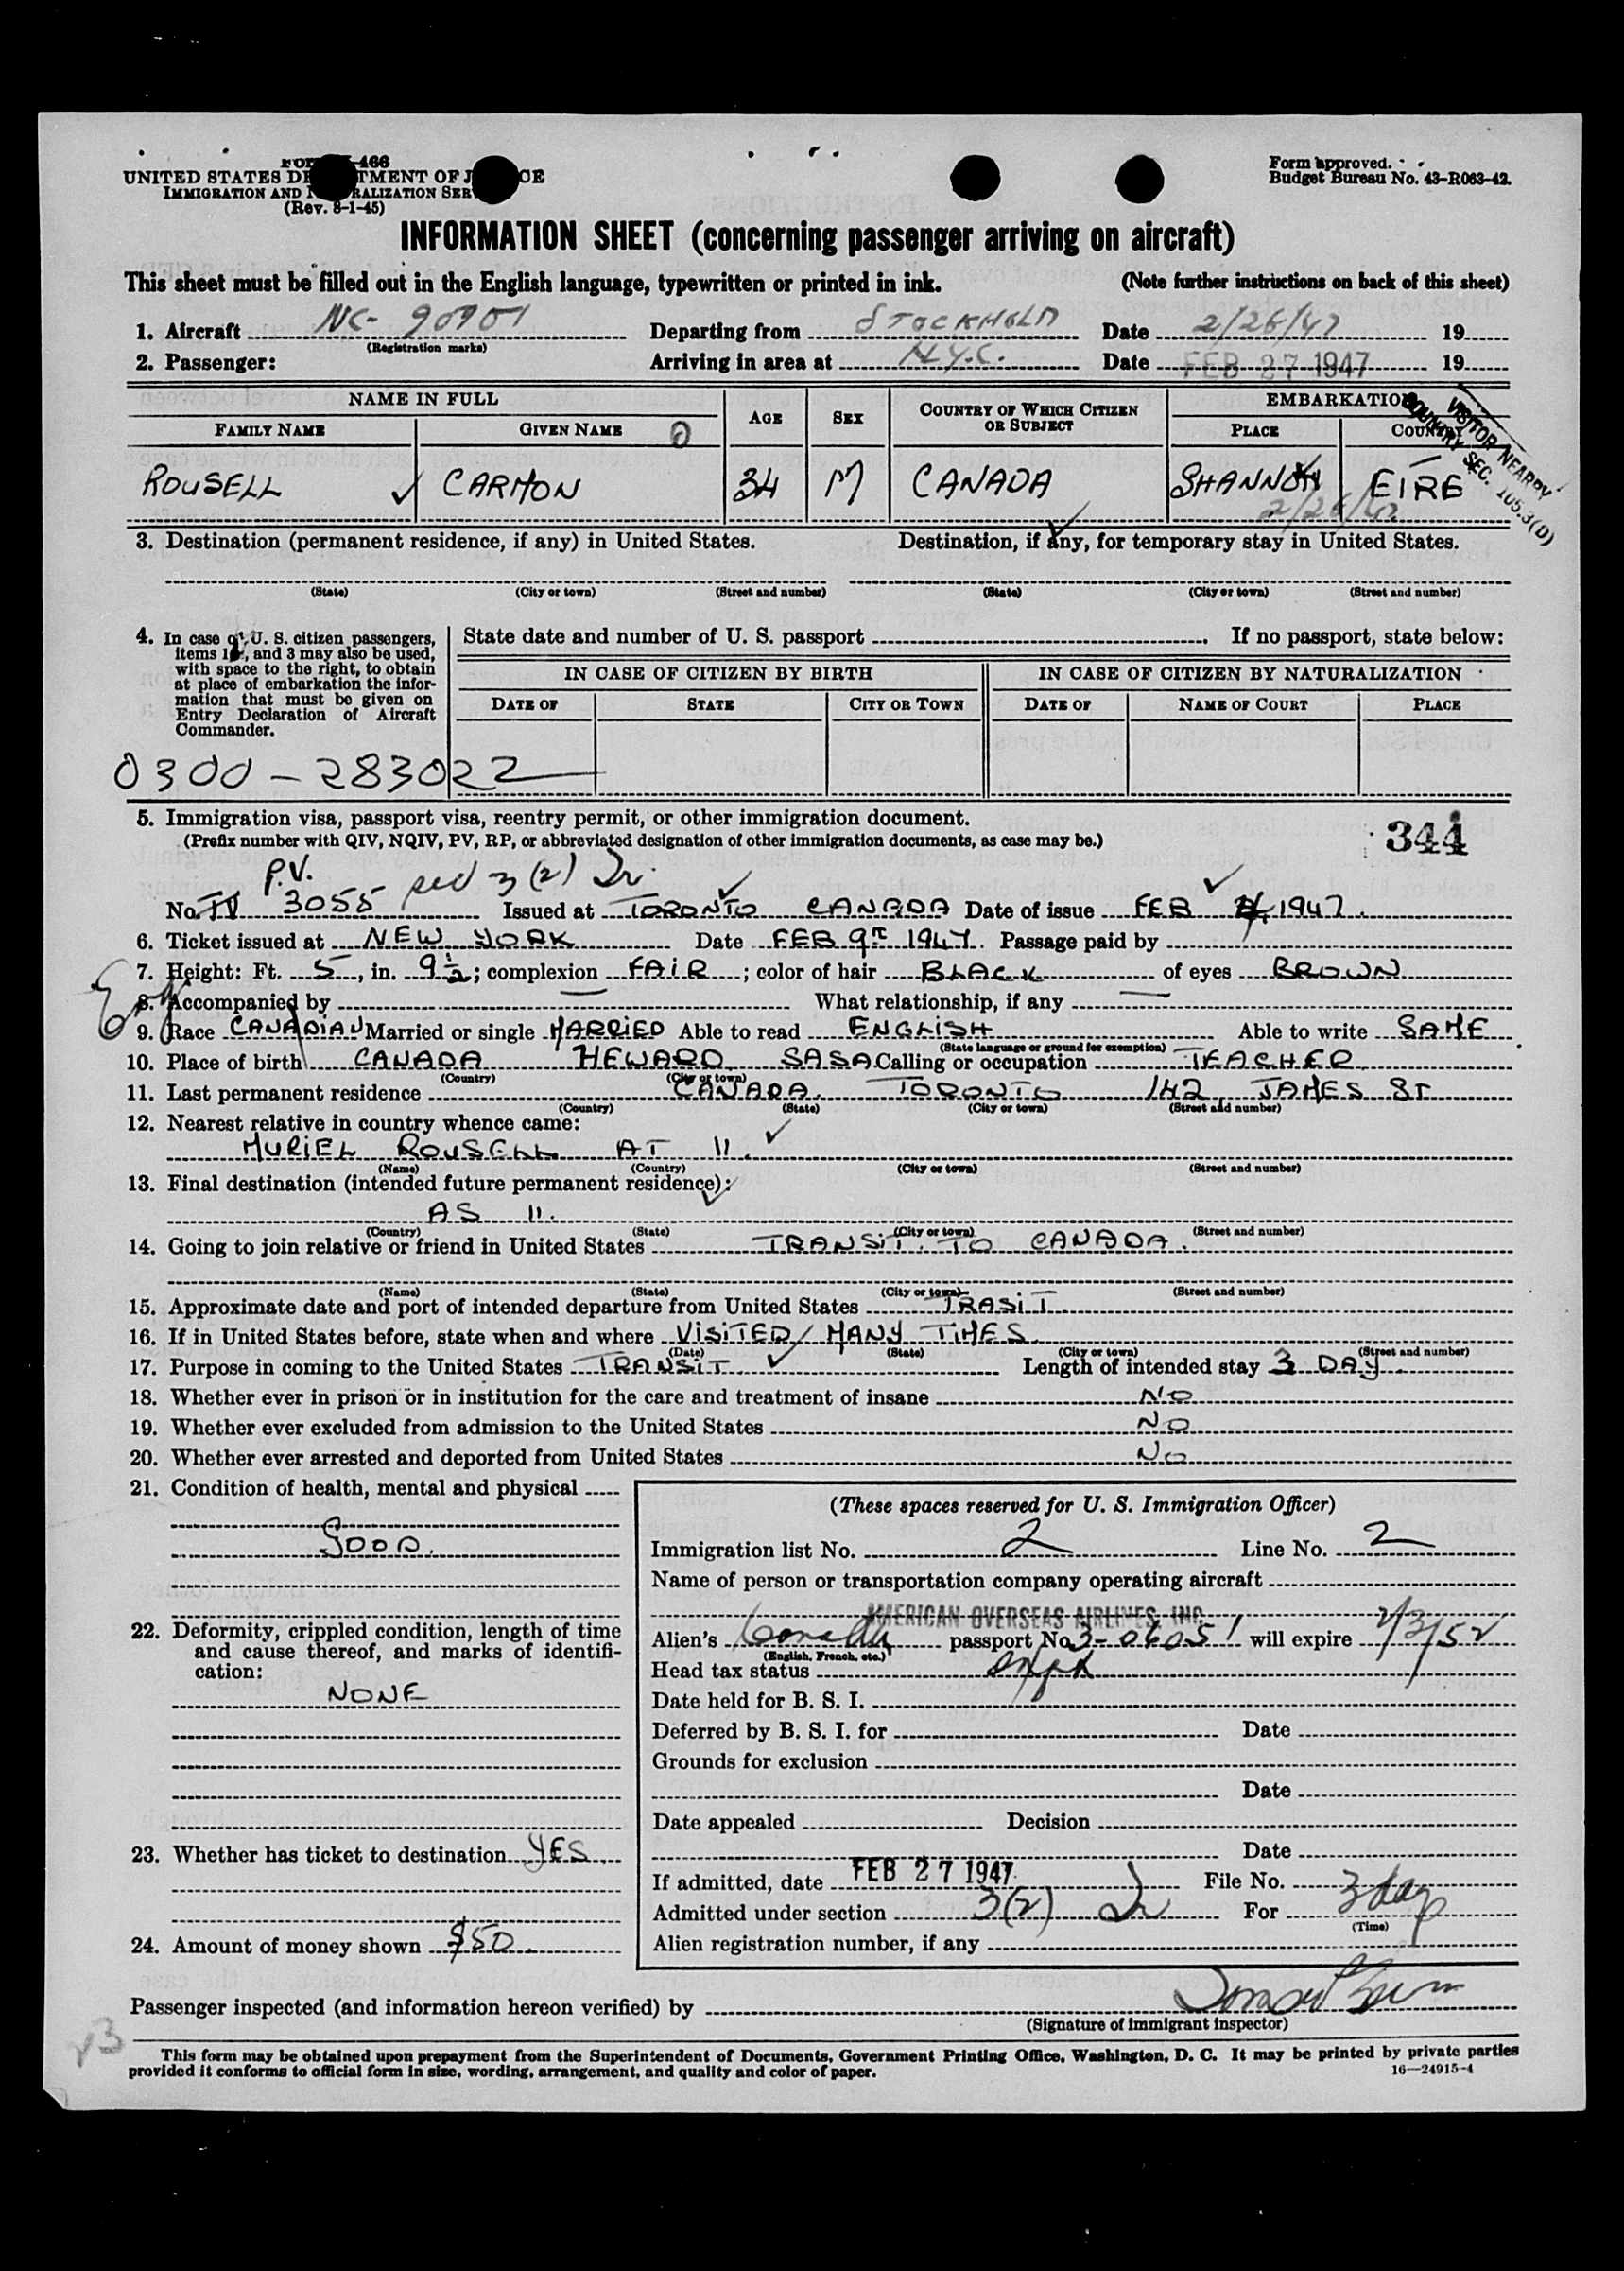 466
UNITED STATES DE TMENT OF J CE
Form approved.
IMMIGRATION AND N RALIZATION SER
Budget Bureau No. 43-R063-42.
(Rev. 8-1-45)
INFORMATION SHEET (concerning passenger arriving on aircraft)
This sheet must be filled out in the English language, typewritten or printed in ink. (Note further instructions on back of this sheet)
1. Aircraft NC- 90901 Departing from STOCKHOLM Date 2/26/47 19
(Registration marks)
2. Passenger: Arriving in area at N.Y.C. Date FEB 27 1947 19
NAME IN FULL AGE SEX COUNTRY OF WHICH CITIZEN OR SUBJECT EMBARKATION
FAMILY NAME GIVEN NAME 0 PLACE COUNTRY
VISITOR NEARBY
COUNTRY SEC. 105.3(D)
ROUSELL CARMON 34 M CANADA SHANNON EIRE
2/26/47
3. Destination (permanent residence, if any) in United States. Destination, if any, for temporary stay in United States.
(State) (City or town) (Street and number) (State) (City or town) (Street and number)
4. In case of U. S. citizen passengers, items 1, and 3 may also be used, with space to the right, to obtain at place of embarkation the information that must be given on Entry Declaration of Aircraft Commander.
State date and number of U. S. passport . If no passport, state below:
IN CASE OF CITIZEN BY BIRTH IN CASE OF CITIZEN BY NATURALIZATION
DATE OF STATE CITY OR TOWN DATE OF NAME OF COURT PLACE
0300-283022
5. Immigration visa, passport visa, reentry permit, or other immigration document.
(Prefix number with QIV, NQIV, PV, RP, or abbreviated designation of other immigration documents, as case may be.)
344
P.V. 3(2)
No. 3055 Issued at TORONTO CANADA Date of issue FEB 1947.
6. Ticket issued at NEW YORK Date FEB 9TH 1947. Passage paid by
7. Height: Ft. 5, in. 9½; complexion FAIR; color of hair BLACK of eyes BROWN
8. Accompanied by — What relationship, if any —
9. Race CANADIAN Married or single MARRIED Able to read ENGLISH Able to write SAME
(State language or ground for exemption)
10. Place of birth CANADA HEWARD SASA Calling or occupation TEACHER
(Country) (City or town)
11. Last permanent residence CANADA. TORONTO 142 JAMES ST
(Country) (State) (City or town) (Street and number)
12. Nearest relative in country whence came:
MURIEL ROUSELL AT 11.
(Name) (Country) (City or town) (Street and number)
13. Final destination (intended future permanent residence):
AS 11.
(Country) (State) (City or town) (Street and number)
14. Going to join relative or friend in United States TRANSIT. TO CANADA.
(Name) (State) (City or town) (Street and number)
15. Approximate date and port of intended departure from United States TRASIT
16. If in United States before, state when and where VISITED/ MANY TIMES
(Date) (State) (City or town) (Street and number)
17. Purpose in coming to the United States TRANSIT Length of intended stay 3 DAY.
18. Whether ever in prison or in institution for the care and treatment of insane NO
19. Whether ever excluded from admission to the United States NO
20. Whether ever arrested and deported from United States NO
21. Condition of health, mental and physical
GOOD.
22. Deformity, crippled condition, length of time and cause thereof, and marks of identification:
NONE
23. Whether has ticket to destination YES
24. Amount of money shown $50.
(These spaces reserved for U. S. Immigration Officer)
Immigration list No. 2 Line No. 2
Name of person or transportation company operating aircraft
AMERICAN OVERSEAS AIRLINES, INC.
Alien's passport No. 3-06051 will expire 2/3/52
(English, French, etc.)
Head tax status
Date held for B. S. I.
Deferred by B. S. I. for Date
Grounds for exclusion
Date
Date appealed Decision
Date
If admitted, date FEB 27 1947 File No.
Admitted under section 3(2) For 3 days
(Time)
Alien registration number, if any
Passenger inspected (and information hereon verified) by
(Signature of immigrant inspector)
This form may be obtained upon prepayment from the Superintendent of Documents, Government Printing Office, Washington, D. C. It may be printed by private parties
provided it conforms to official form in size, wording, arrangement, and quality and color of paper.
16—24915-4